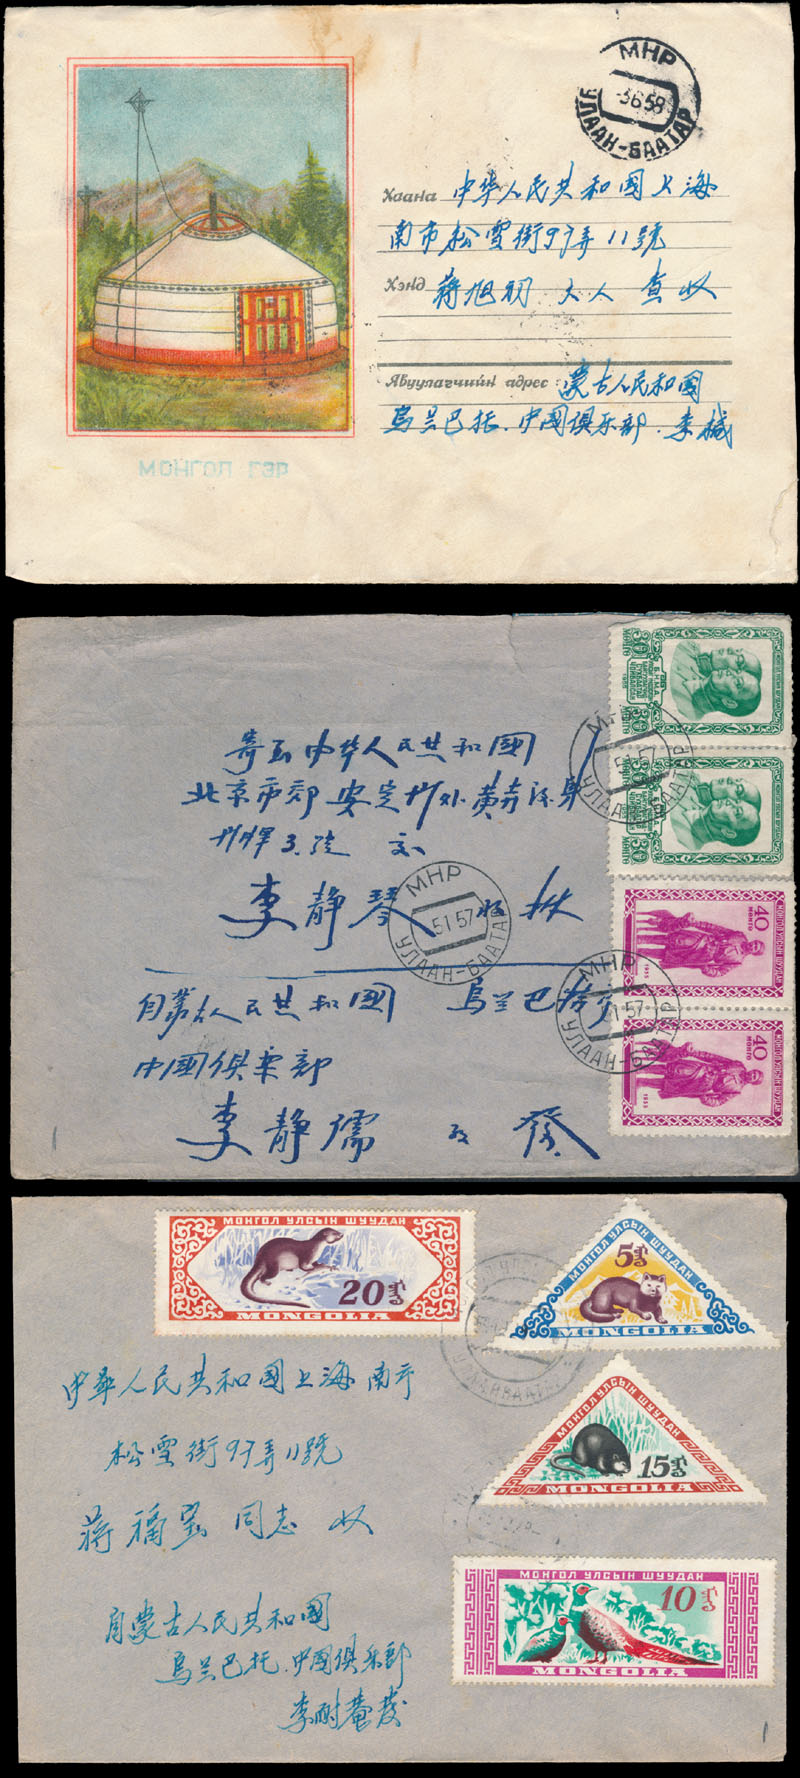 МНР
-3658
УЛААН-БААТАР
Хаана 中华人民共和國上海
南市松雪街97弄11號
Хэнд 蒋旭初大人查收
Явуулагчийн адрес: 蒙古人民和國
烏兰巴托.中國俱乐部.李
МОНГОЛ ГЭР
30 МӨНГӨ 30
30 МӨНГӨ 30
寄至中华人民共和國
北京市郊安定门外黄寺
МНР
5157
УЛААН-БААТАР
李静琴收
МНР
5157
УЛААН-БААТАР
40 МӨНГӨ
МОНГОЛ УЛСЫН ШУУДАН
1955
自蒙古人民共和國 烏兰巴
МНР
1 57
УЛААН-БААТАР
40 МӨНГӨ
МОНГОЛ УЛСЫН ШУУДАН
1955
中國俱乐部
李静儒
МОНГОЛ УЛСЫН ШУУДАН
20
MONGOLIA
МОНГОЛ УЛСЫН ШУУДАН
5
MONGOLIA
中華人民共和國上海南市
松雪街97弄11號
МОНГОЛ УЛСЫН ШУУДАН
15
MONGOLIA
蒋福宝同志收
МОНГОЛ УЛСЫН ШУУДАН
10
MONGOLIA
自蒙古人民共和國
烏兰巴托.中國俱乐部
李耐菴发